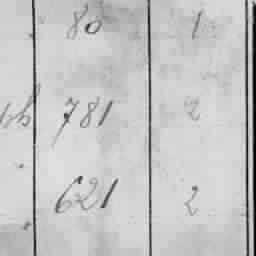 80 1
781 2
621 2